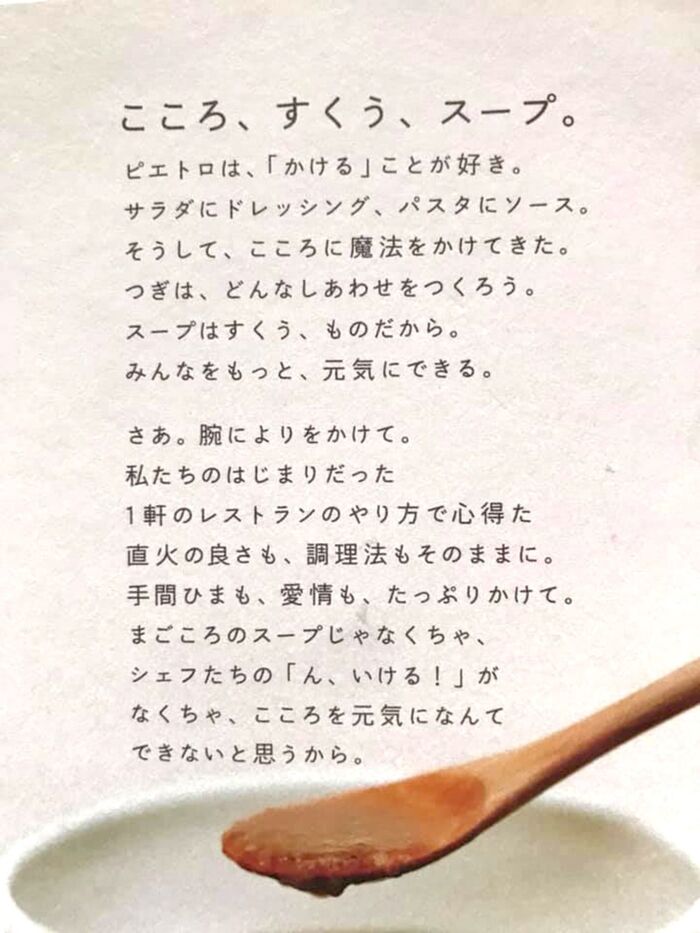 こころ、すくう、スープ。
ピエトロは、「かける」ことが好き。
サラダにドレッシング、パスタにソース。
そうして、こころに魔法をかけてきた。
つぎは、どんなしあわせをつくろう。
スープはすくう、ものだから。
みんなをもっと、元気にできる。
さあ。腕によりをかけて。
私たちのはじまりだった
1軒のレストランのやり方で心得た
直火の良さも、調理法もそのままに。
手間ひまも、愛情も、たっぷりかけて。
まごころのスープじゃなくちゃ、
シェフたちの「ん、いける！」が
なくちゃ、こころを元気になんて
できないと思うから。